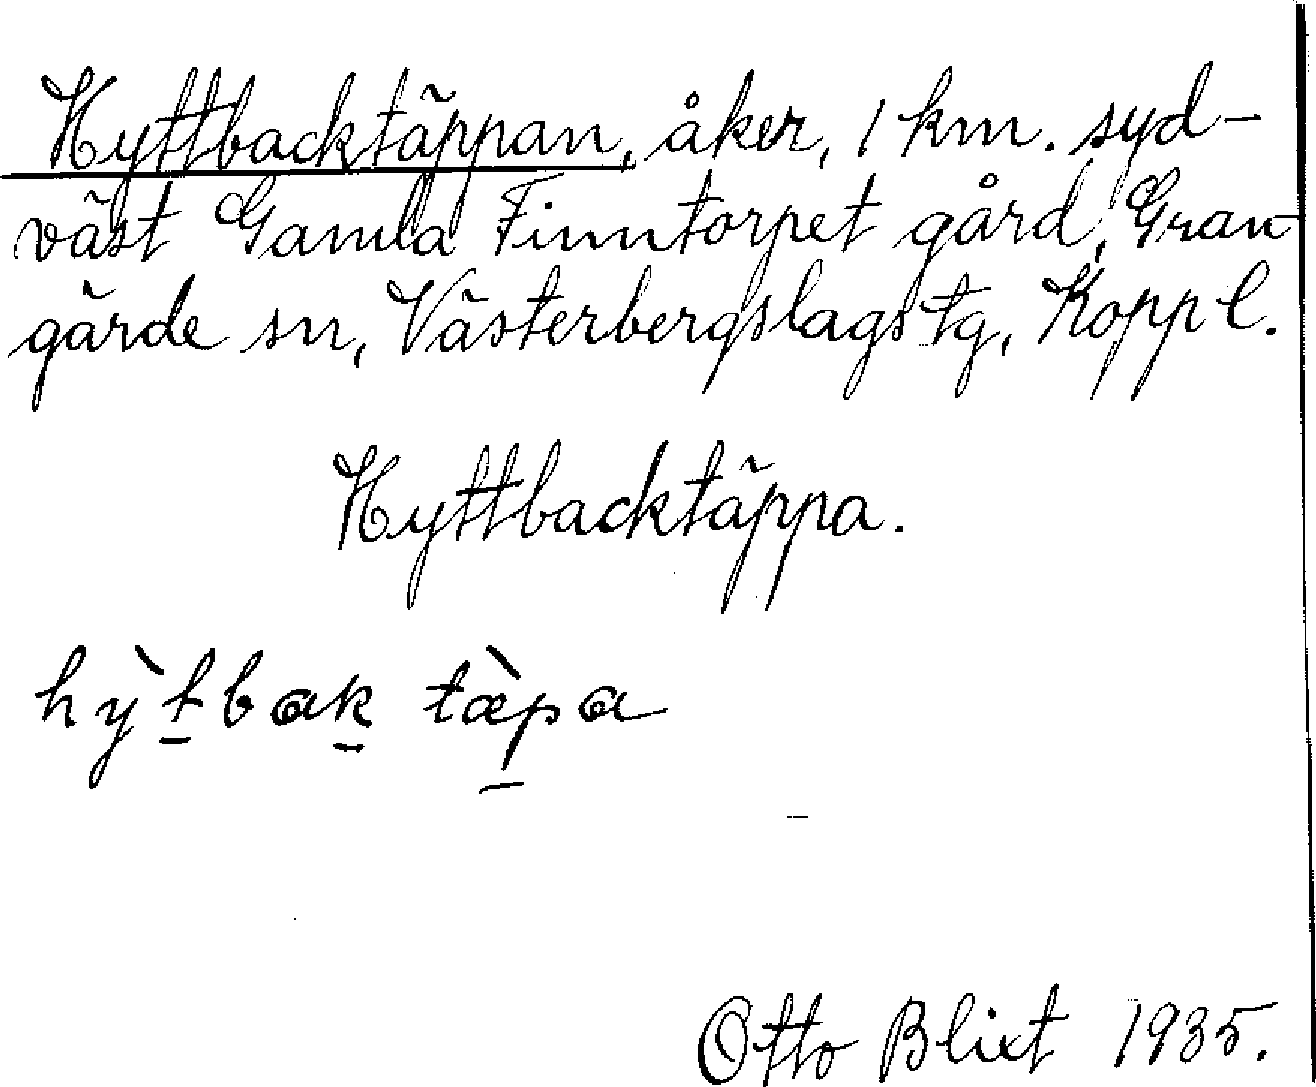 Hyttbacktäppan, åker, 1 km. syd-
väst Gamla Finntorpet gård, Gran-
gärde sn, Västerbergslags tg, Kopp l.
Hyttbacktäppa.
hỳt̠bak̠ tæ̀p̠a
Otto Blixt 1935.